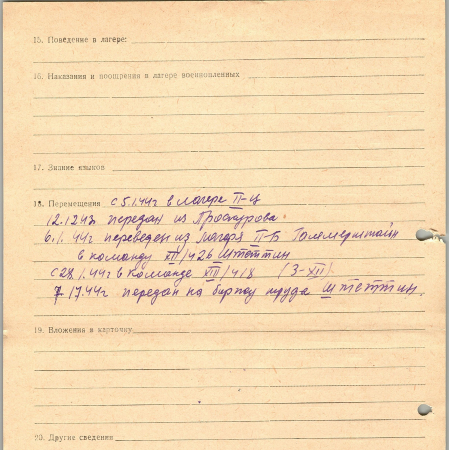 15. Поведение в лагере:
16. Наказания и поощрения в лагере военнопленных
17. Знание языков
18. Перемещения с 5.1.44г в лагере II-Ц
12.12.43г. передан из Проскурова
6.1.44г переведен из лагеря II-Б
в команду XII/426 Штеттин
с 28.1.44г в команде XIII/418 (3-XII).
7.17.44г передан на биржу труда Штеттин.
19. Вложения в карточку
20. Другие сведения